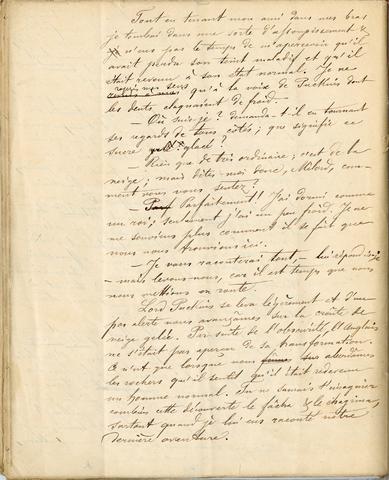 Tout en tenant mon ami dans mes bras
je tombai dans une sorte d'assoupissement &
n'eus pas le temps de m'apercevoir qu'il
avait perdu son teint maladif et qu'il
était revenu à son état normal. Je ne
repris mes sens
qu'à la voix de Puckins dont
les dents claquaient de froid.
— Où suis-je? demanda-t-il en tournant
ses regards de tous côtés; que signifie ce
sucre glacé?
Rien que de très ordinaire; c'est de la
neige; mais dites-moi donc, Milord, com-
ment vous vous sentez?
— Parfaitement!! J'ai dormi comme
un roi; seulement j'ai un peu froid. Je ne
me souviens plus comment il se fait que
nous nous trouvions ici.
— Je vous raconterai tout, — lui répondis-je
— mais levons-nous, car il est temps que nous
nous mettions en route.
Lord Puckins se leva légèrement et d'un
pas alerte nous avançâmes sur la croûte de
neige gelée. Par suite de l'obscurité, l'Anglais
ne s'était pas aperçu de sa transformation.
Ce n'est que lorsque nous atteignîmes
les rochers qu'il sentit qu'il était redevenu
un homme normal. Tu ne saurais t'imaginer
combien cette découverte le fâcha & le chagrina,
surtout quand je lui eus raconté nôtre
dernière aventure.